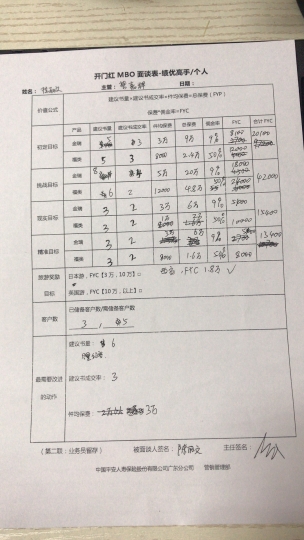 开门红 MBO 面谈表-绩优高手/个人
姓名： 主管：
价值公式 建议书量*建议书成交率*件均保费=总保费（FYP）
保费*佣金率=FYC
产品 建议书量 建议书成交率 件均保费 总保费 佣金率 FYC 合计FYC
初蓝目标 金瑞 5 3 3万 9万 9% 8100 20100
福类 5 3 8000 2.4万 50% 12000
挑战目标 金瑞 8 5万 20万 9% 18000 42000
福类 6 2 12000 4.8万 50% 24000
现实目标 金瑞 3 2 3万 6万 9% 5400 15400
福类 3 2 1万 2万 50% 10000
精准目标 金瑞 3 2 3万 6万 9% 13400
福类 3 2 8000 1.6万 50% 8000
旅游奖励目标 日本游，FYC【3万，10万】□ FYC 1.8万 ✓
美国游，FYC【10万，以上】□
客户数 已储备客户数/需储备客户数
3 , 5
最需要放进的动作 建议书量： 6
建议书成交率： 3
件均保费： 3万
（第二联：业务员留存） 被面谈人签名： 主任签名：
中国平安人寿保险股份有限公司广东分公司 营销管理部